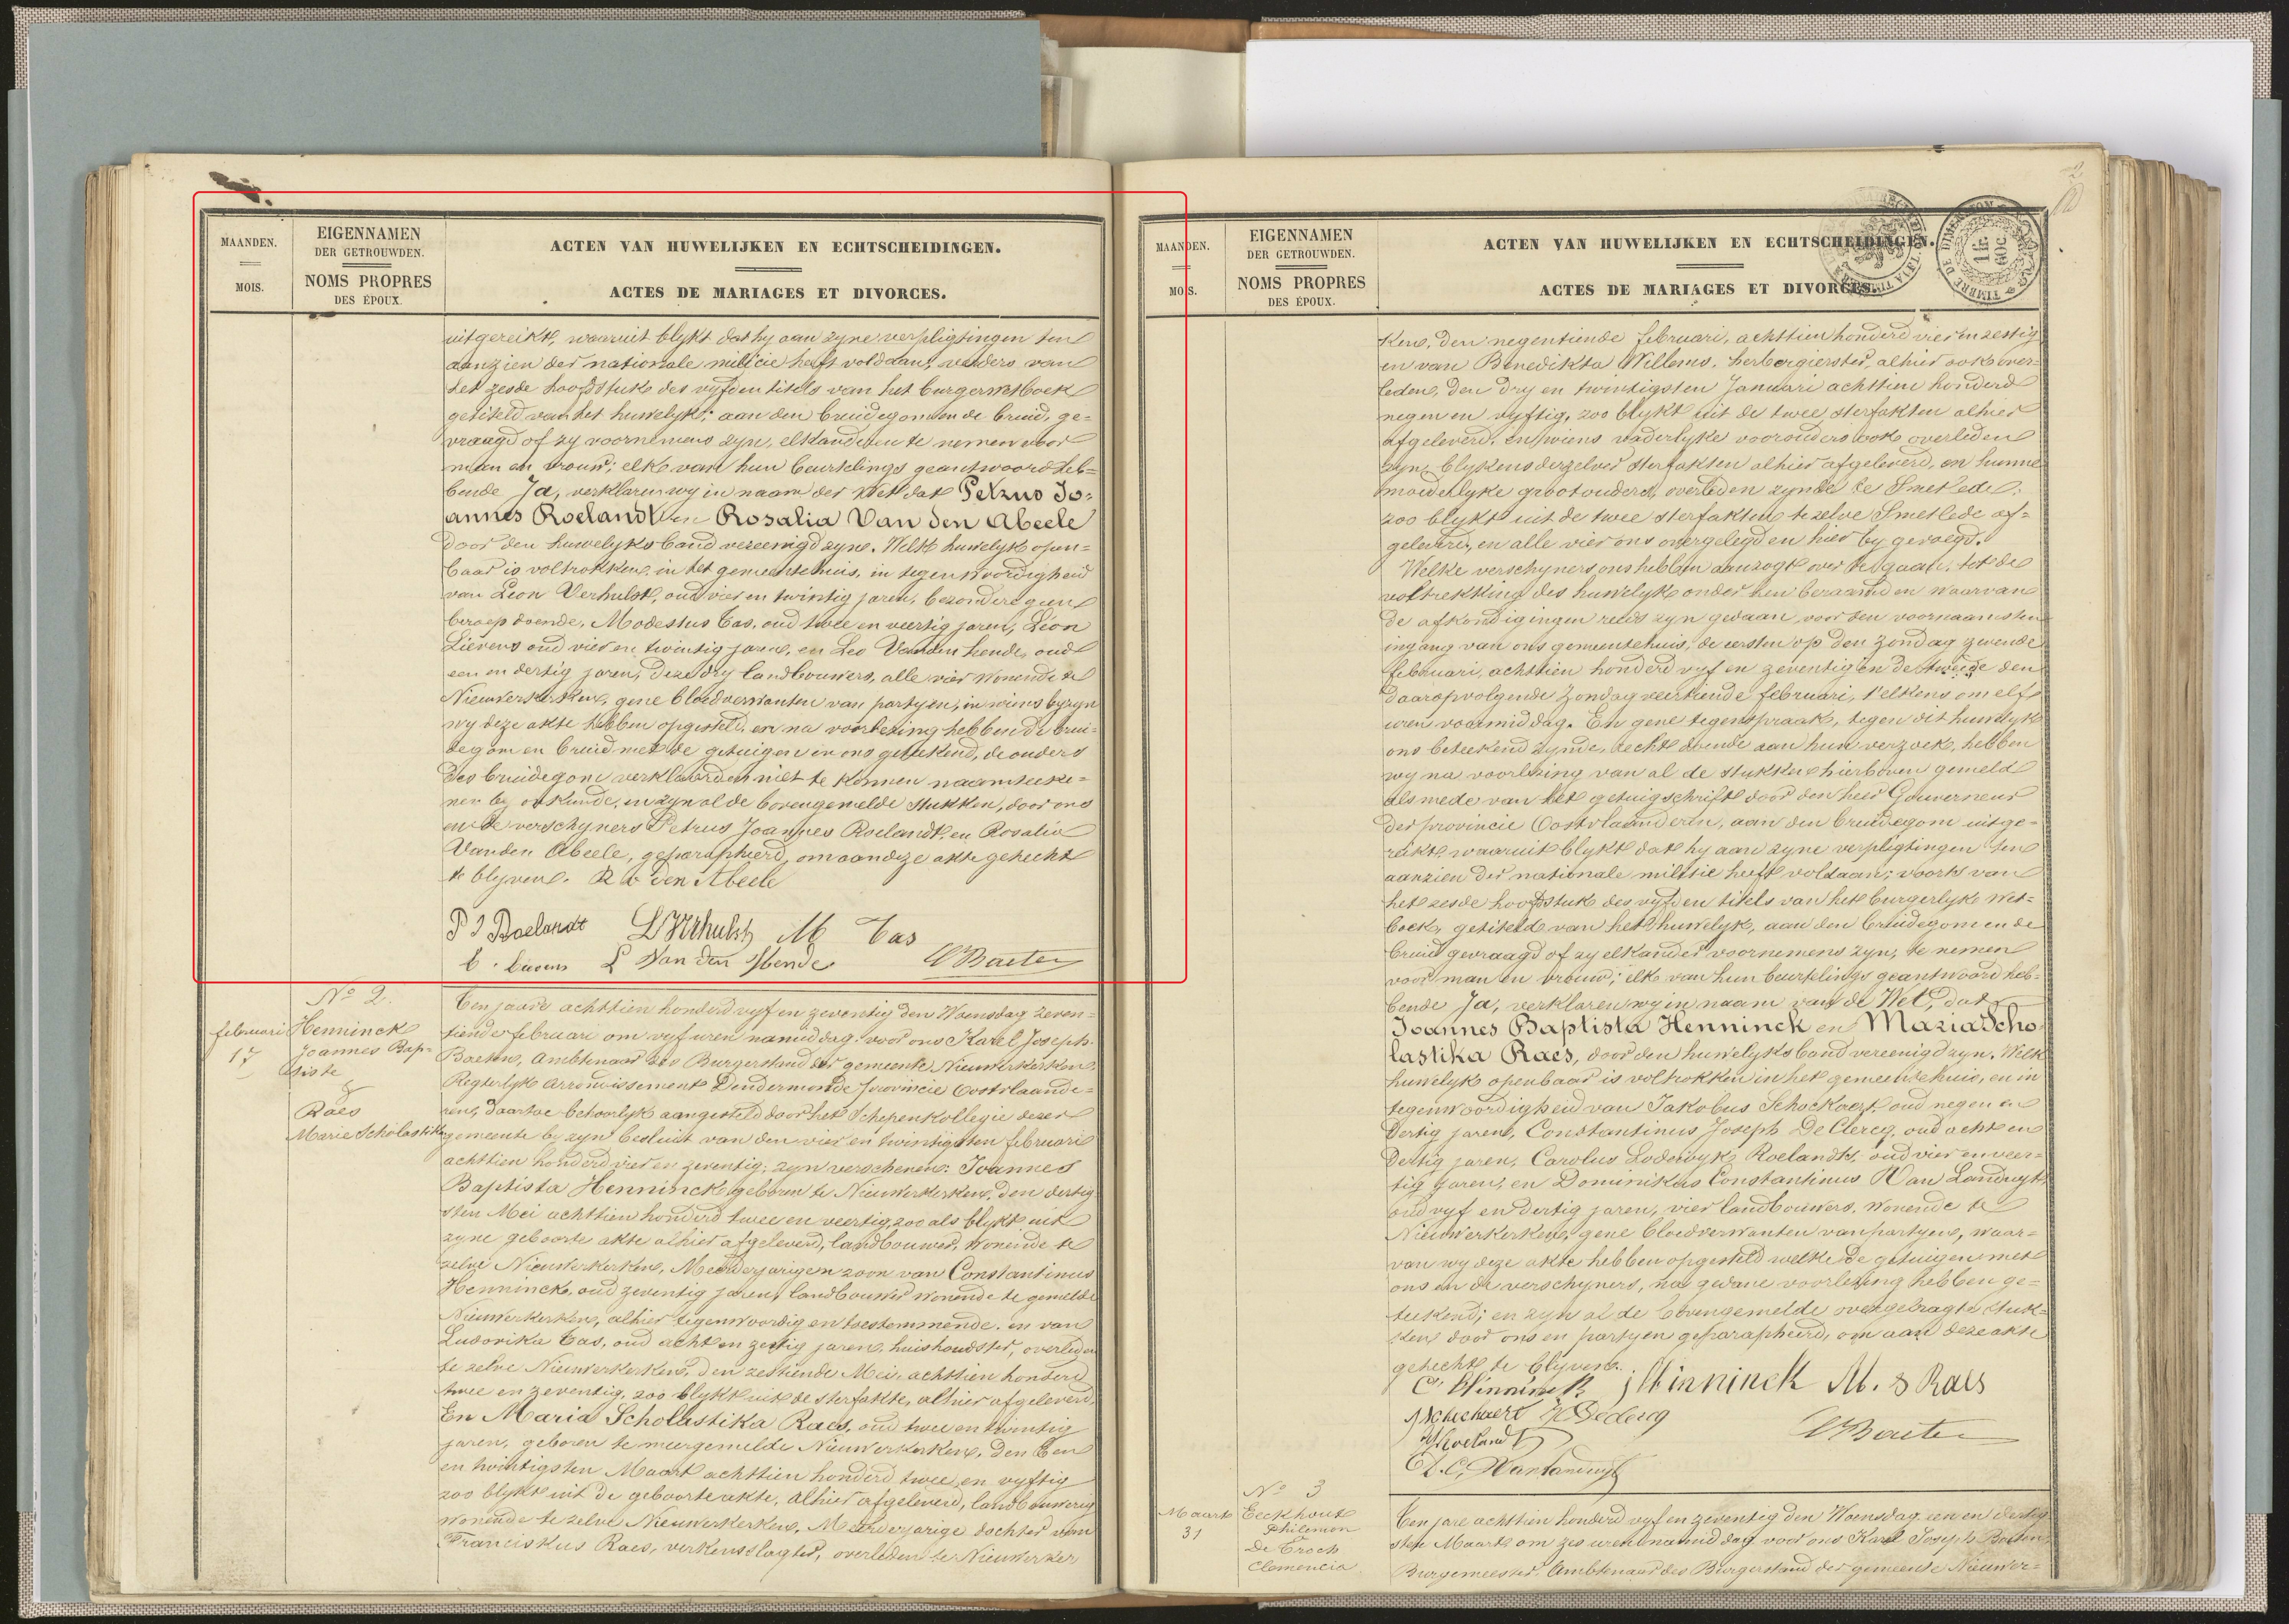 MAANDEN.
MOIS.
EIGENNAMEN
DER GETROUWDEN.
NOMS PROPRES
DES ÉPOUX.
ACTEN VAN HUWELIJKEN EN ECHTSCHEIDINGEN.
ACTES DE MARIAGES ET DIVORCES.
uitgereikt, waaruit blykt dat hy aan zyne verpligtingen ten
aanzien der nationale milicie heeft voldaan, verders van
het zesde hoofdstuk des vyfden titels van het burgerwetboek
getiteld van het huwelyk; aan den bruidegom en de bruid, ge-
vraagd of zy voornemens zyn, elkanderen te nemen voor
man en vrouw; elk van hun beurtelings geantwoord heb=
bende Ja, verklaren wy in naam der Wet dat Petrus Jo=
annes Roelandt en Rosalia Van den Abeele
door den huwelyks band vereenigd zyn. Welk huwelyk open=
baar is voltrokken, in het gemeentehuis, in tegenwoordigheid
van Leon Verhulst, oud vier en twintig jaren, bezondere geen
beroep doende, Modestus Cas, oud twee en veertig jaren, Léon
Lievens oud vier en twintig jaren, en Leo Van den hende, oud
een en dertig jaren, deze dry landbouwers, alle vier wonende te
Nieuwerkerken, gene bloedverwanten van partyen, in wiens byzyn
wy deze akte hebben opgesteld, en na voorlezing hebben de brui=
degom en bruid met de getuigen en ons geteekend, de ouders
des bruidegom verklaarden niet te konnen naamteeke=
nen by onkunde, en zyn al de bovengemelde stukken, door ons
en de verschyners Petrus Joannes Roelandt, en Rosalia
Van den Abeele, geparapheerd, om aan deze akte gehecht
te blyven. R v den Abeele
P J Roelandt L Verhulst M Cas
L Van den Hende Baeten
No 2.
februari
17
Henninck
Joannes Bap=
tiste
&
Raes
Marie Scholastika
Ten jaare achttien honderd vyf en zeventig den Woensdag zeven-
tiende februari om vyf uren namiddag, voor ons Karel Joseph
Baeten, Ambtenaar des Burgerstand der gemeente Nieuwerkerken,
Regterlyk Arrondissement Dendermonde provincie Oostvlaande=
ren, daartoe behoorlyk aangesteld door het Schepenkollegie dezer
gemeente by zyn besluit van den vier en twintigsten februari
achttien honderd vier en zeventig; zyn verschenen: Joannes
Baptista Henninck, geboren te Nieuwerkerken, den dertig=
sten Mei achttien honderd twee en veertig, zoo als blykt uit
zyne geboorte akte alhier afgeleverd, landbouwer, wonende te
zelve Nieuwerkerken, Meerderjarigen zoon van Constantinus
Henninck, oud zeventig jaren, landbouwer wonende te gemelde
Nieuwerkerken, alhier tegenwoordig en toestemmende. en van
Ludovika Cas, oud acht en zestig jaren, huishoudster, overleden
te zelve Nieuwerkerken, den zestiende Mei, achttien honderd
twee en zeventig, zoo blykt uit de sterfakte, alhier afgeleverd.
En Maria Scholastika Raes, oud twee en twintig
jaren, geboren te meergemelde Nieuwerkerken, den Een
en twintigsten Maart achttien honderd twee en vyftig
zoo blykt uit de geboorteakte, alhier afgeleverd, landbouwerig
wonende te zelve Nieuwerkerken, Meerderjarige dochter van
Franciskus Raes, verkensslagter, overleden te Nieuwerker
MAANDEN.
MOIS.
EIGENNAMEN
DER GETROUWDEN.
NOMS PROPRES
DES ÉPOUX.
ACTEN VAN HUWELIJKEN EN ECHTSCHEIDINGEN.
ACTES DE MARIAGES ET DIVORCES.
TIMBRE DE DIMENSION
1 fr. 60c
ken, den negentiende februari, achttien honderd vier en zestig
en van Benedikta Willems, herbergierster, alhier ook over=
leden, den dry en twintigsten Januari achttien honderd
negen en vyftig, zoo blykt uit de twee sterfakten alhier
afgeleverd, en wiens vaderlyke voorouders ook overleden
zyn, blykens derzelver sterfakten alhier afgeleverd, en hunne
moederlyke grootouders, overleden zynde te Smetlede;
zoo blykt uit de twee sterfakten te zelve Smetlede af=
geleverd, en alle vier ons overgelegd en hier by gevoegd.
Welke verschyners ons hebben aanzogt over te gaan, tot de
voltrekking des huwelyk onder hen beraamd en waarvan
de afkondigingen reeds zyn gedaan, voor den voornaamsten
ingang van ons gemeentehuis, de eersten op den zondag zevende
februari, achttien honderd vyf en zeventig en de tweede den
daaropvolgende zondag veertiende februari, telkens om elf
uren voormiddag. En gene tegenspraak, tegen dit huwelyk
ons beteekend zynde, recht doende aan hun verzoek, hebben
wy na voorlezing van al de stukken hierboven gemeld
alsmede van het getuigschrift door den heer Gouverneur
der provincie Oostvlaanderen, aan den bruidegom uitge=
reikt, waaruit blykt dat hy aan zyne verpligtingen ten
aanzien der nationale militie heeft voldaan; voorts van
het zesde hoofdstuk des vyfden titels van het burgerlyk Wet=
boek, getiteld van het huwelyk, aan den bruidegom en de
bruid gevraagd of zy elkander voornemens zyn, te nemen
voor man en vrouw; elk van hun beurtelings geantwoord heb=
bende Ja, verklaren wy in naam van de Wet, dat
Joannes Baptista Henninck en Maria Scho
lastika Raes, door den huwelyks band vereenigd zyn. Welk
huwelyk openbaar is voltrokken in het gemeentehuis, en in
tegenwoordigheid van Jakobus Schockaert, oud negen en
dertig jaren, Constantinus Joseph De Clercq, oud acht en
dertig jaren, Carolus Lodewyk Roelandt, oud vier en veer=
tig jaren, en Dominikus Constantinus Van Landuyt,
oud vyf en dertig jaren, vier landbouwers, wonende te
Nieuwerkerken, gene bloedverwanten van partyen, waar=
van wy deze akte hebben opgesteld welke de getuigen met
ons en de verschyners, na gedane voorlezing hebben ge=
teekend; en zyn al de bovengemelde overgelragte stuk=
ken, door ons en partyen geparapheerd, om aan deze akte
gehecht te blyven.
C. Winninck J Winninck M. S Raes
J Schockaert Declercq
Roelandt Baeten
D.C. Vanlanduyt
No 3
Maart
31
Eeckhout
Philemon
De Troch
Clemencia
Ten jare achttien honderd vyf en zeventig den Woensdag een en dertig
sten Maart om zes uren namiddag voor ons Karel Joseph Baeten,
Burgemeester, Ambtenaar des Burgerstand der gemeente Nieuwer=